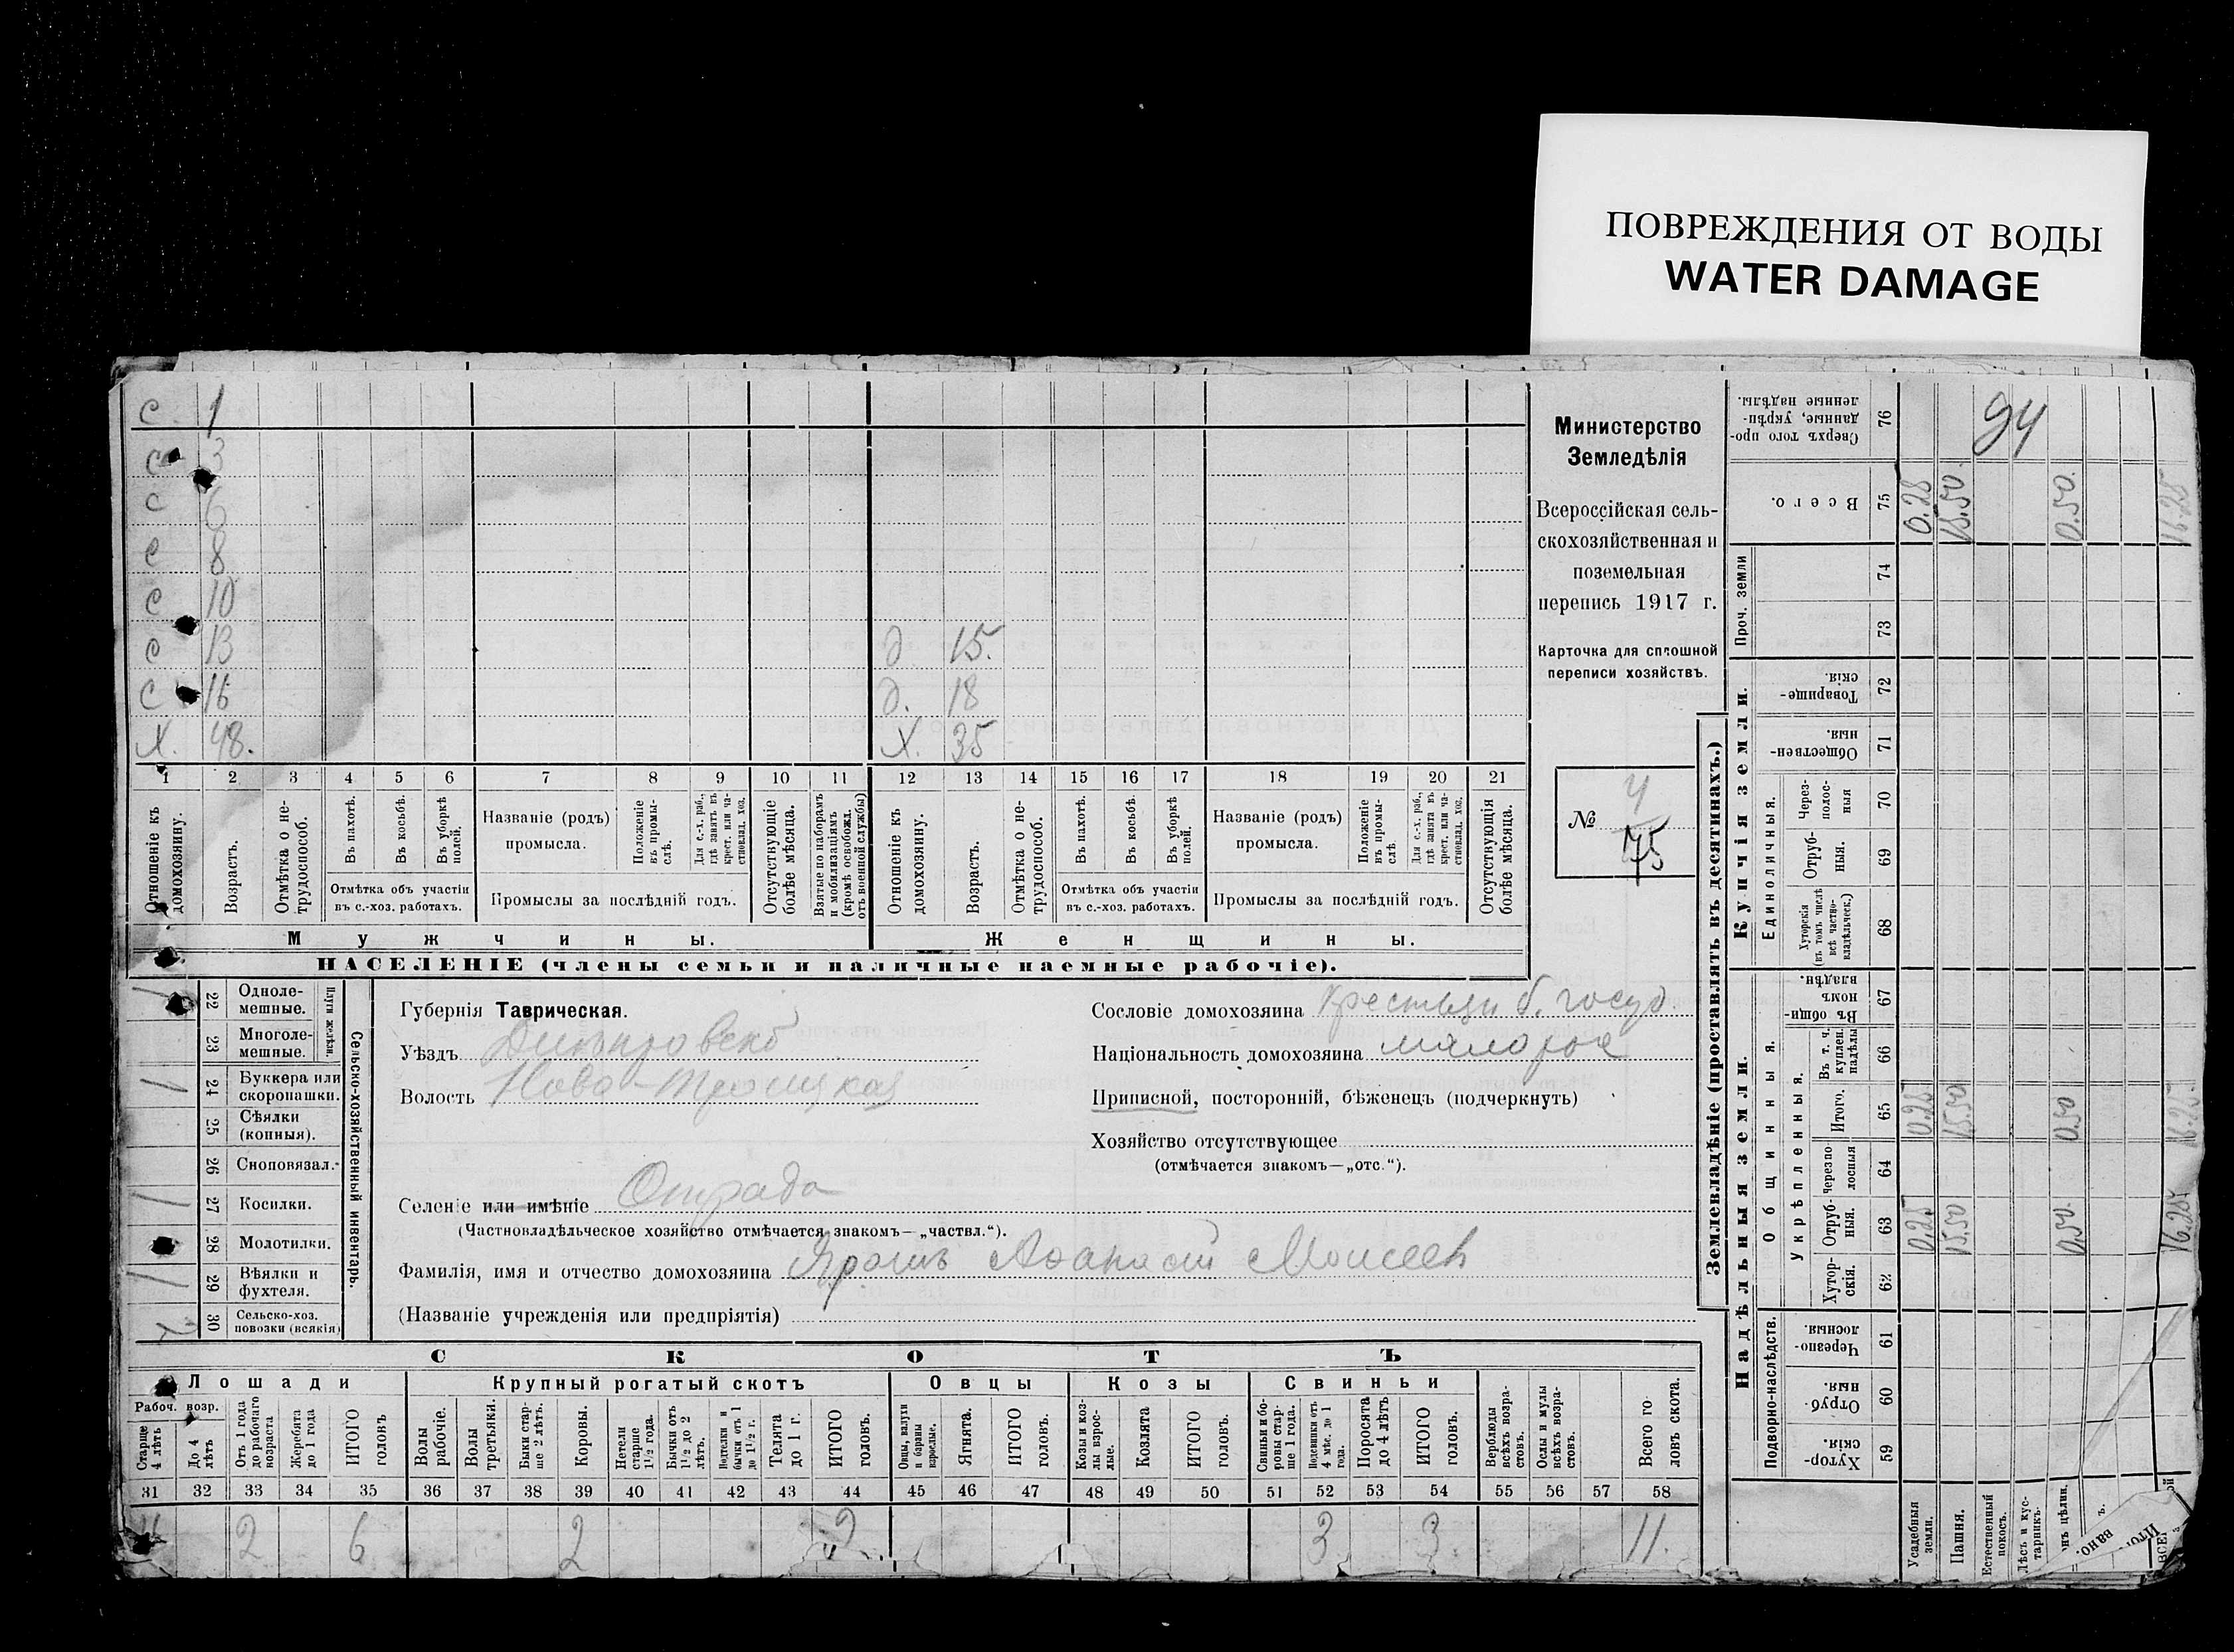 ПОВРЕЖДЕНИЯ ОТ ВОДЫ
WATER DAMAGE
Министерство
Земледѣлія
Всероссійская сель-
скохозяйственная и
поземельная
перепись 1917 г.
Карточка для сплошной
переписи хозяйствъ.
№ 4
75
с 1
с 3
с 6
с 8
с 10
с 13 д 15.
с 16 д. 18
Х. 48. Х. 35
1 2 3 4 5 6 7 8 9 10 11 12 13 14 15 16 17 18 19 20 21
Отношеніе къ домохозяину.
Возрастъ.
Отмѣтка о не-трудоспособ.
Въ пахотѣ.
Въ косьбѣ.
Въ уборкѣ полей.
Отмѣтка объ участіи
въ с.-хоз. работахъ.
Названіе (родъ)
промысла.
Положеніе въ промы-слѣ.
Для с.-х. раб., гдѣ занятъ въ крест. или ча-стновлад. хоз.
Промыслы за послѣдній годъ.
Отсутствующіе болѣе мѣсяца.
Взятые по наборамъ и мобилизаціямъ (кромѣ освобожд. отъ военной службы)
Отношеніе къ домохозяину.
Возрастъ.
Отмѣтка о не-трудоспособ.
Въ пахотѣ.
Въ косьбѣ.
Въ уборкѣ полей.
Отмѣтка объ участіи
въ с.-хоз. работахъ.
Названіе (родъ)
промысла.
Положеніе въ промы-слѣ.
Для с.-х. раб., гдѣ занята въ крест. или ча-стновлад. хоз.
Промыслы за послѣдній годъ.
Отсутствующія болѣе мѣсяца.
Мужчины. Женщины.
НАСЕЛЕНІЕ (члены семьи и наличные наемные рабочіе).
Сельско-хозяйственный инвентарь.
Плуги желѣзн.
1 22 Одноле-мешные.
23 Многоле-мешные.
1 24 Буккера или скоропашки.
25 Сѣялки (конныя).
26 Сноповязал.
1 27 Косилки.
28 Молотилки.
1 29 Вѣялки и фухтеля.
30 Сельско-хоз. повозки (всякія)
Губернія Таврическая.
Уѣздъ Днепровскій
Волость Ново-Троицкая
Селеніе или имѣніе Отрада
(Частновладѣльческое хозяйство отмѣчается знакомъ—„частвл.“).
Фамилія, имя и отчество домохозяина Ярошъ Афанасій Моисеев
(Названіе учрежденія или предпріятія)
Сословіе домохозяина Крестьян б. госуд.
Національность домохозяина малорос
Приписной, посторонній, бѣженецъ (подчеркнуть)
Хозяйство отсутствующее
(отмѣчается знакомъ—„отс.“).
СКОТЪ
Лошади Крупный рогатый скотъ Овцы Козы Свиньи
Рабоч. возр.
Старше 4 лѣтъ
До 4 лѣтъ
Отъ 1 года до рабочаго возраста
Жеребята до 1 года
ИТОГО головъ
Волы рабочіе.
Волы третьяки.
Быки стар-ше 2 лѣтъ.
Коровы.
Нетели старше 1½ года.
Бычки отъ 1½ до 2 лѣтъ.
Нетелки и бычки отъ 1 до 1½ г.
Телята до 1 г.
ИТОГО головъ.
Овцы, валухи и бараны взрослые.
Ягнята.
ИТОГО головъ.
Козы и коз-лы взрос-лые.
Козлята
ИТОГО головъ.
Свиньи и бо-ровы стар-ше 1 года.
Подсвинки отъ 4 мѣс. до 1 года.
Поросята до 4 лѣтъ
ИТОГО головъ.
Верблюды всѣхъ возра-стовъ.
Ослы и мулы всѣхъ возра-стовъ.
Всего го-ловъ скота.
31 32 33 34 35 36 37 38 39 40 41 42 43 44 45 46 47 48 49 50 51 52 53 54 55 56 57 58
4 2 6 2 2 3 3 11.
Землевладѣніе (проставлять въ десятинахъ.)
Надѣльныя земли. Купчія земли. Проч. земли
Подворно-наслѣдств.
Общинныя.
Укрѣпленныя.
Единоличныя.
Сверхъ того про-данные, укрѣп-ленные надѣлы. 76
Всего. 75
74
73
Товарище-скія. 72
Обществен-ныя. 71
Через-полос-ныя 70
Отруб-ныя. 69
Хуторскія (въ томъ числѣ всѣ частно-владѣльческ.) 68
Въ общи-номъ владѣн. 67
Въ т. ч. куплен. надѣлы 66
Итого. 65
Черезпо лосныя 64
Отруб-ныя. 63
Хутор-скія. 62
Черезпо-лосныя 61
Отруб-ныя. 60
Хутор-скія 59
94
0.25 15.50 0.50. 16.25
0.25 15.50 0.50 16.25
0.25 15.50 0.50. 16.25
Усадебныя земли.
Пашня.
Естественный покосъ.
Лѣсъ и кус-тарникъ.